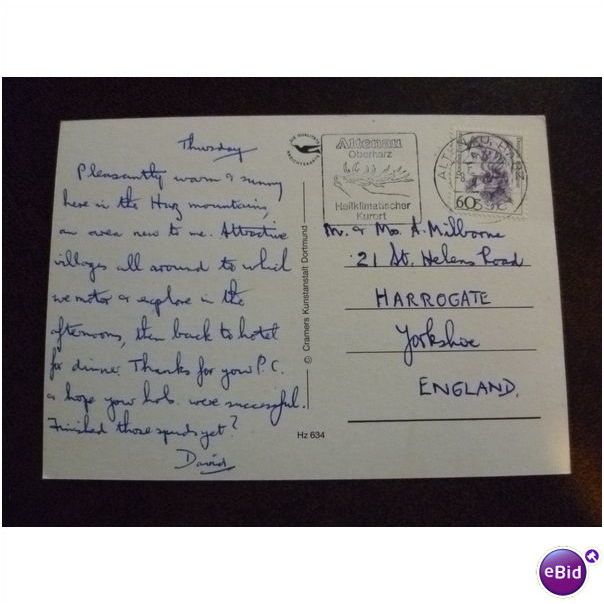 Thursday
Pleasantly warm & sunny
here in the Harz mountains,
an area new to me. Attractive
villages all around to which
we motor & explore in the
afternoons, then back to hotel
for dinner. Thanks for your P.C.
& hope your hols. were successful.
Finished those spuds yet?
David
DIE QUALITÄTS
ANSICHTSKARTE
© Cramers Kunstanstalt Dortmund
Hz 634
Altenau
Oberharz
Heilklimatischer
Kurort
ALTENAU, HARZ
60
Mr. & Mrs. A. Milborne
21 St. Helens Road
HARROGATE
Yorkshire
ENGLAND.
eBid